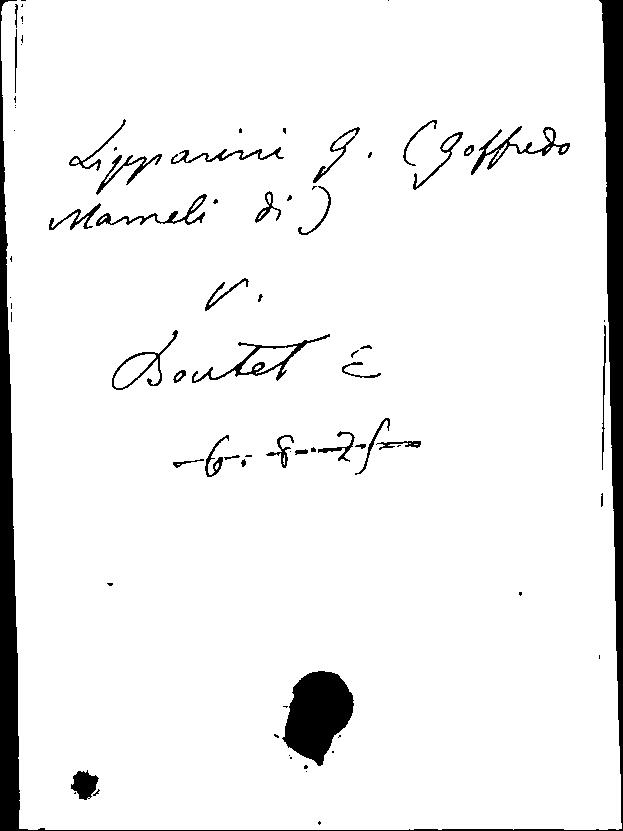 Lipparini G. (Goffredo
Mameli di)
V.
Boutet E
6. 8. 25